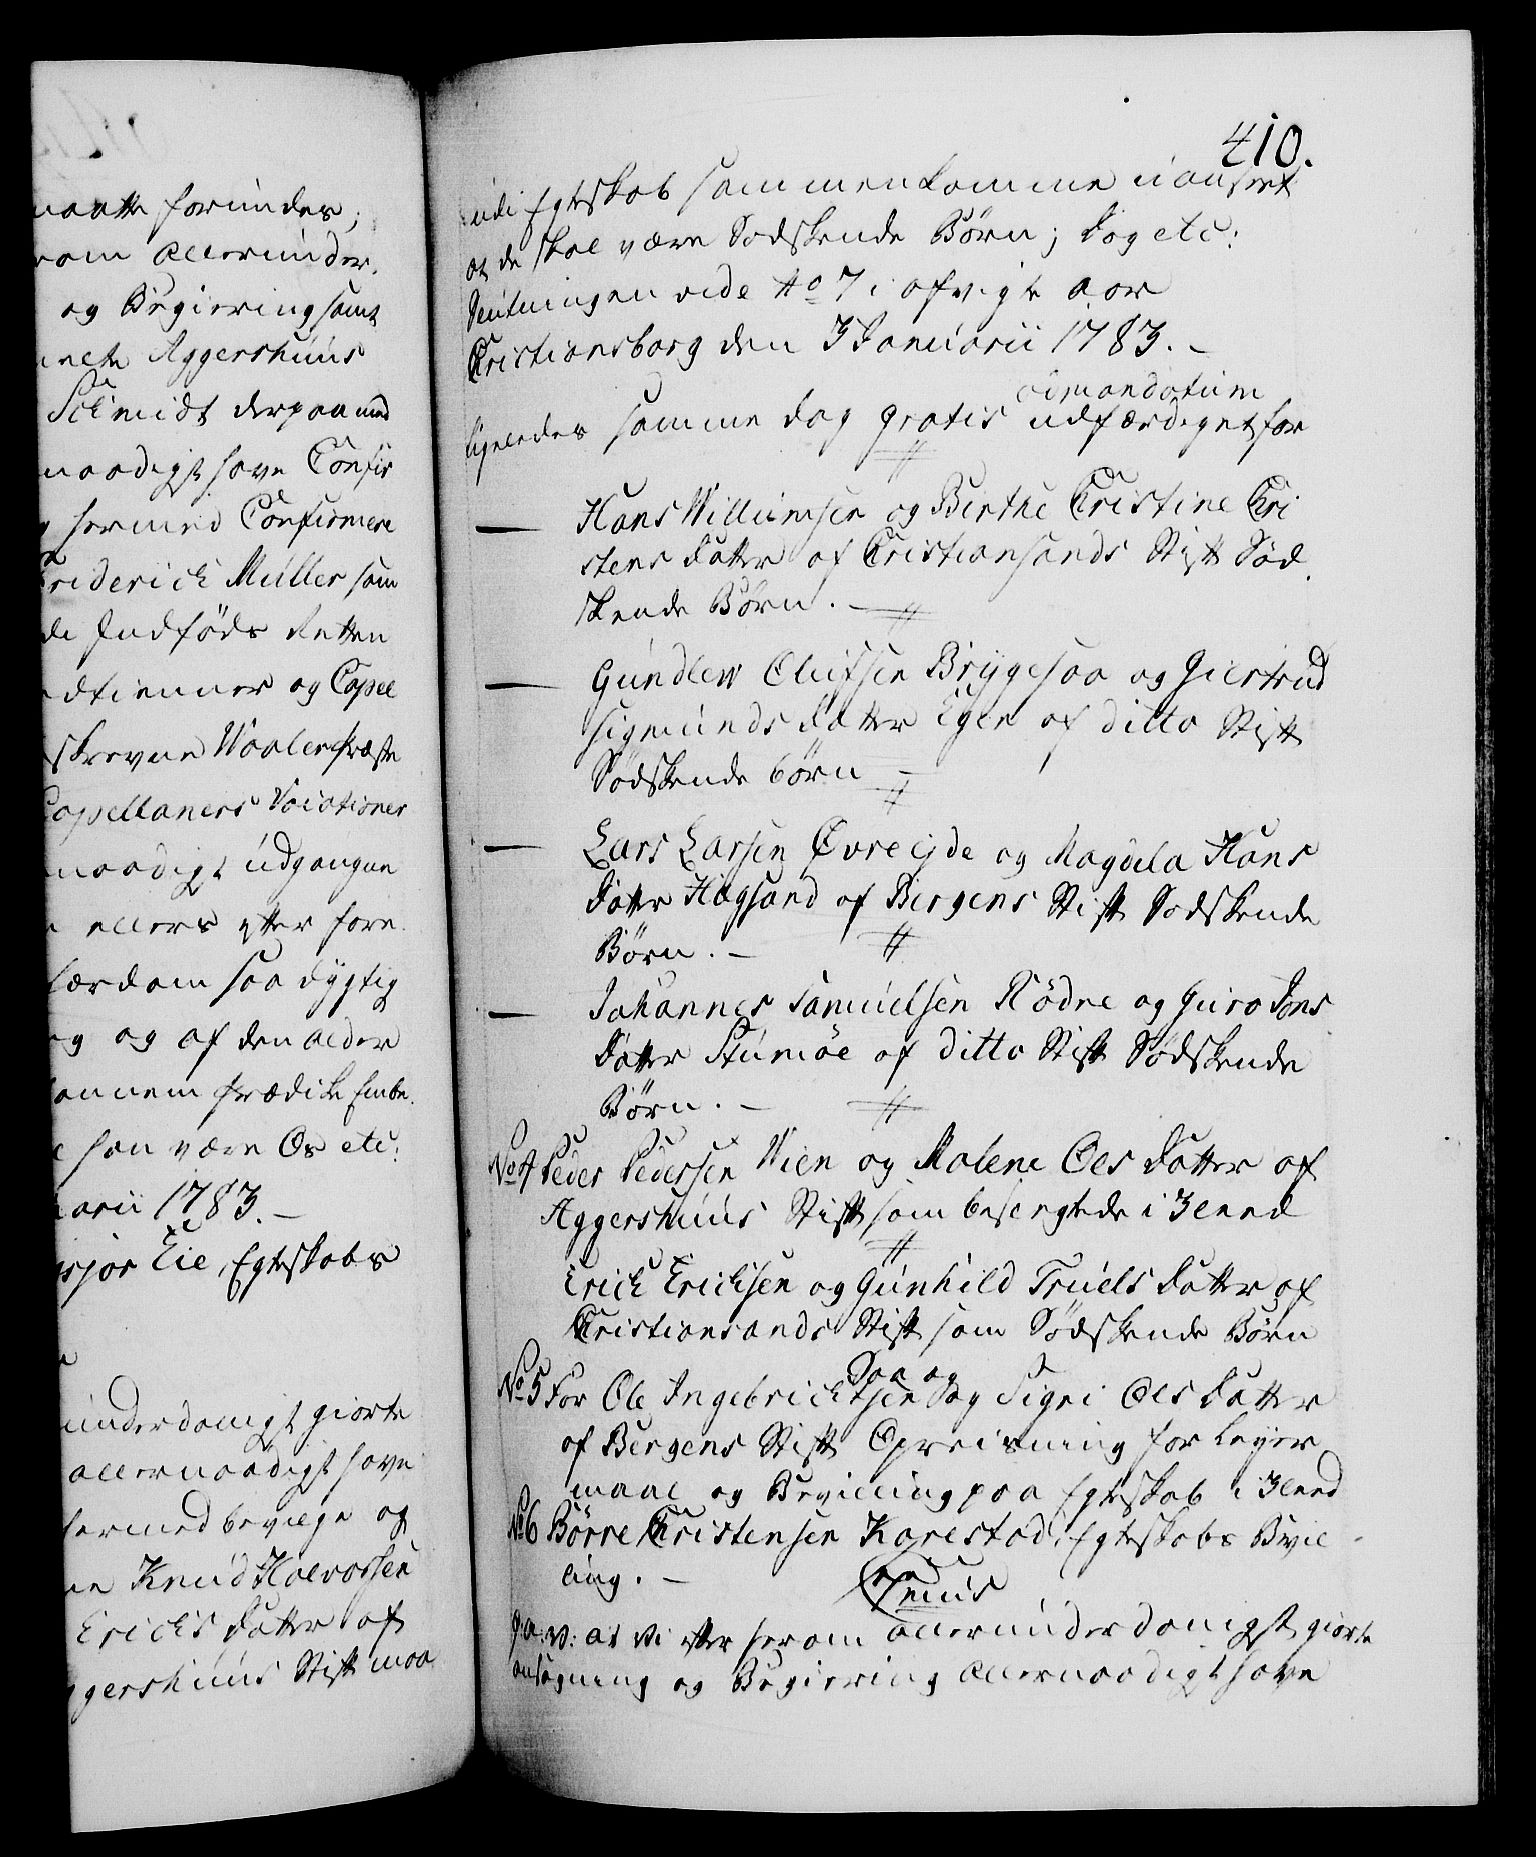 maatte forundes;
som allerunder-
og Begiering samt
Aggershuus
Schmidt derpaa med
naadigst have Confir
hermed Confirmere
Friderich Müller som
de Indføds Retten
og Capel
skrevne Præste
Capellaners Vocationer
naadigst udgangne
ellers efter fore
lærdom saa dygtig
og af den alder
annem Prædike Embe-
han være Os etc:
arii 1783.
Eie, Egteskabs
underdanigst giorte
allernaadigst have
hermed bevilge og
Knud Halvorsen
Erichs Datter af
ggershuus Stift maa
410.
udi Egteskab sammenkomme uanseet
at de skal være Sødskende Børn; dog etc:
Slutningen vide No 7 i afvigte aar
Christiansborg den 3 Januarii 1783. -
ad mandatum
ligeledes samme dag gratis udfærdiget for
Hans Willumsen og Birthe Cristine Cri
stens datter af Cristiansands Stift Sød-
skende Børn. -
Gundlew Olufsen Brygesaa og Giertrud
Sigmunds datter Egen af ditto Stift
Sødskende børn -
Lars Larsen Øvre Eide og Magdela Hans
datter Hogsand af Bergens Stift Sødskende
Børn. -
Johannes Samuelsen Rödne og Guro Jons
datter Stumöe af ditto Stift Sødskende
Børn. -
No 4 Peder Pedersen Wien og Malene Oles datter af
Aggershuus Stift, som besvogrede i 3 Leed
Erich Erichsen og Gunhild Truels datter af
Cristiansands Stift som Sødskende Børn
Daa og
No 5 For Ole Ingebrichtsen Sigri Oles datter
af Bergens Stift Opreisning for Leyer
maal og Bevilling paa Egteskab i 3 Leed
No 6 Børre Christensen Korestad, Egteskabs Bevil
ling. -
G: a: v: at Vi efter herom allerunderdanigst giorte
ansøgning og Begiering allernaadigst have